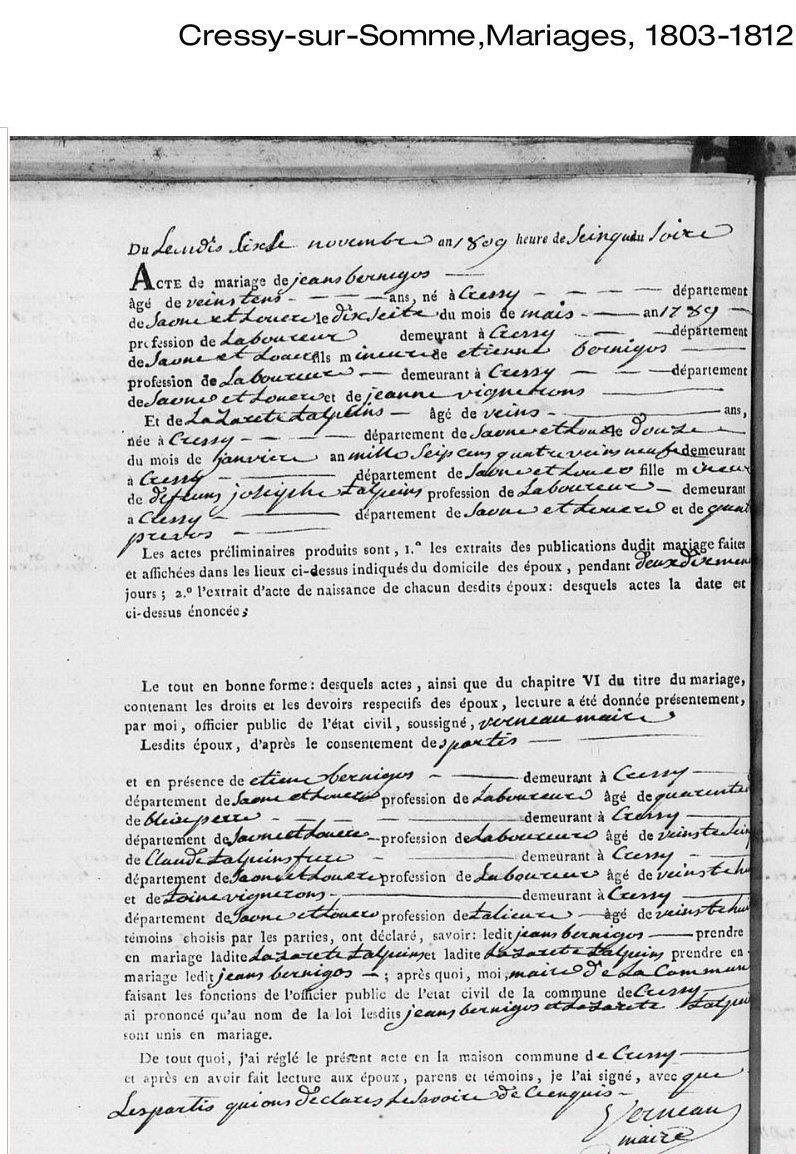 Cressy-sur-Somme,Mariages, 1803-1812
Du Lendis sixse novembre an 1809 heure de seinq du soire
ACTE de mariage de jeans bernigos
âgé de veins tens ans, né à Cressy département
de Saone et Louere le dix seite du mois de mais an 1789
profession de Laboureur demeurant à Cressy département
de Saone et Louere fils mineur de etienne bernigos
profession de Laboureur demeurant à Cressy département
de Saone et Louere et de jeanne vignerons
Et de Lazarete Lalpeins âgé de veins ans,
née à Cressy département de Saone et Louere le douze
du mois de janviere an mille seip cens quatre veins neufe demeurant
à Cressy département de Saone et Louere fille mineur
de defeuns josiphe Lalpeins profession de Laboureur demeurant
à Cressy département de Saone et Louere et de
prevos
Les actes préliminaires produits sont, 1.º les extraits des publications dudit mariage faites
et affichées dans les lieux ci-dessus indiqués du domicile des époux, pendant deux dixmen
jours; 2.º l'extrait d'acte de naissance de chacun desdits époux: desquels actes la date est
ci-dessus énoncée;
Le tout en bonne forme: desquels actes, ainsi que du chapitre VI du titre du mariage,
contenant les droits et les devoirs respectifs des époux, lecture a été donnée présentement,
par moi, officier public de l'état civil, soussigné, verneau maire
Lesdits époux, d'après le consentement des partis
et en présence de etiene bernigos demeurant à Cressy
département de Saone et Louere profession de Laboureur âgé de quarente
de bleise perre demeurant à Cressy
département de Saone et Louere profession de Laboureur âgé de veinste
de Claude Lalpeins frere demeurant à Cressy
département de Saone et Louere profession de Laboureur âgé de veinste hui
et de toine vignerons demeurant à Cressy
département de Saone et Louere profession de talieure âgé de veinste hui
témoins choisis par les parties, ont déclaré, savoir: ledit jeans bernigos prendre
en mariage ladite Lazarete Lalpeins et ladite Lazarete Lalpeins prendre en
mariage ledit jeans bernigos; après quoi, moi, maire de La Commune
faisant les fonctions de l'officier public de l'état civil de la commune de Cressy
ai prononcé qu'au nom de la loi lesdits jeans bernigos et Lazarete Lalpein
sont unis en mariage.
De tout quoi, j'ai réglé le présent acte en la maison commune de Cressy
et après en avoir fait lecture aux époux, parens et témoins, je l'ai signé, avec que
Les partis qui ons declares ne savoire de ce enquis
Verneau
maire